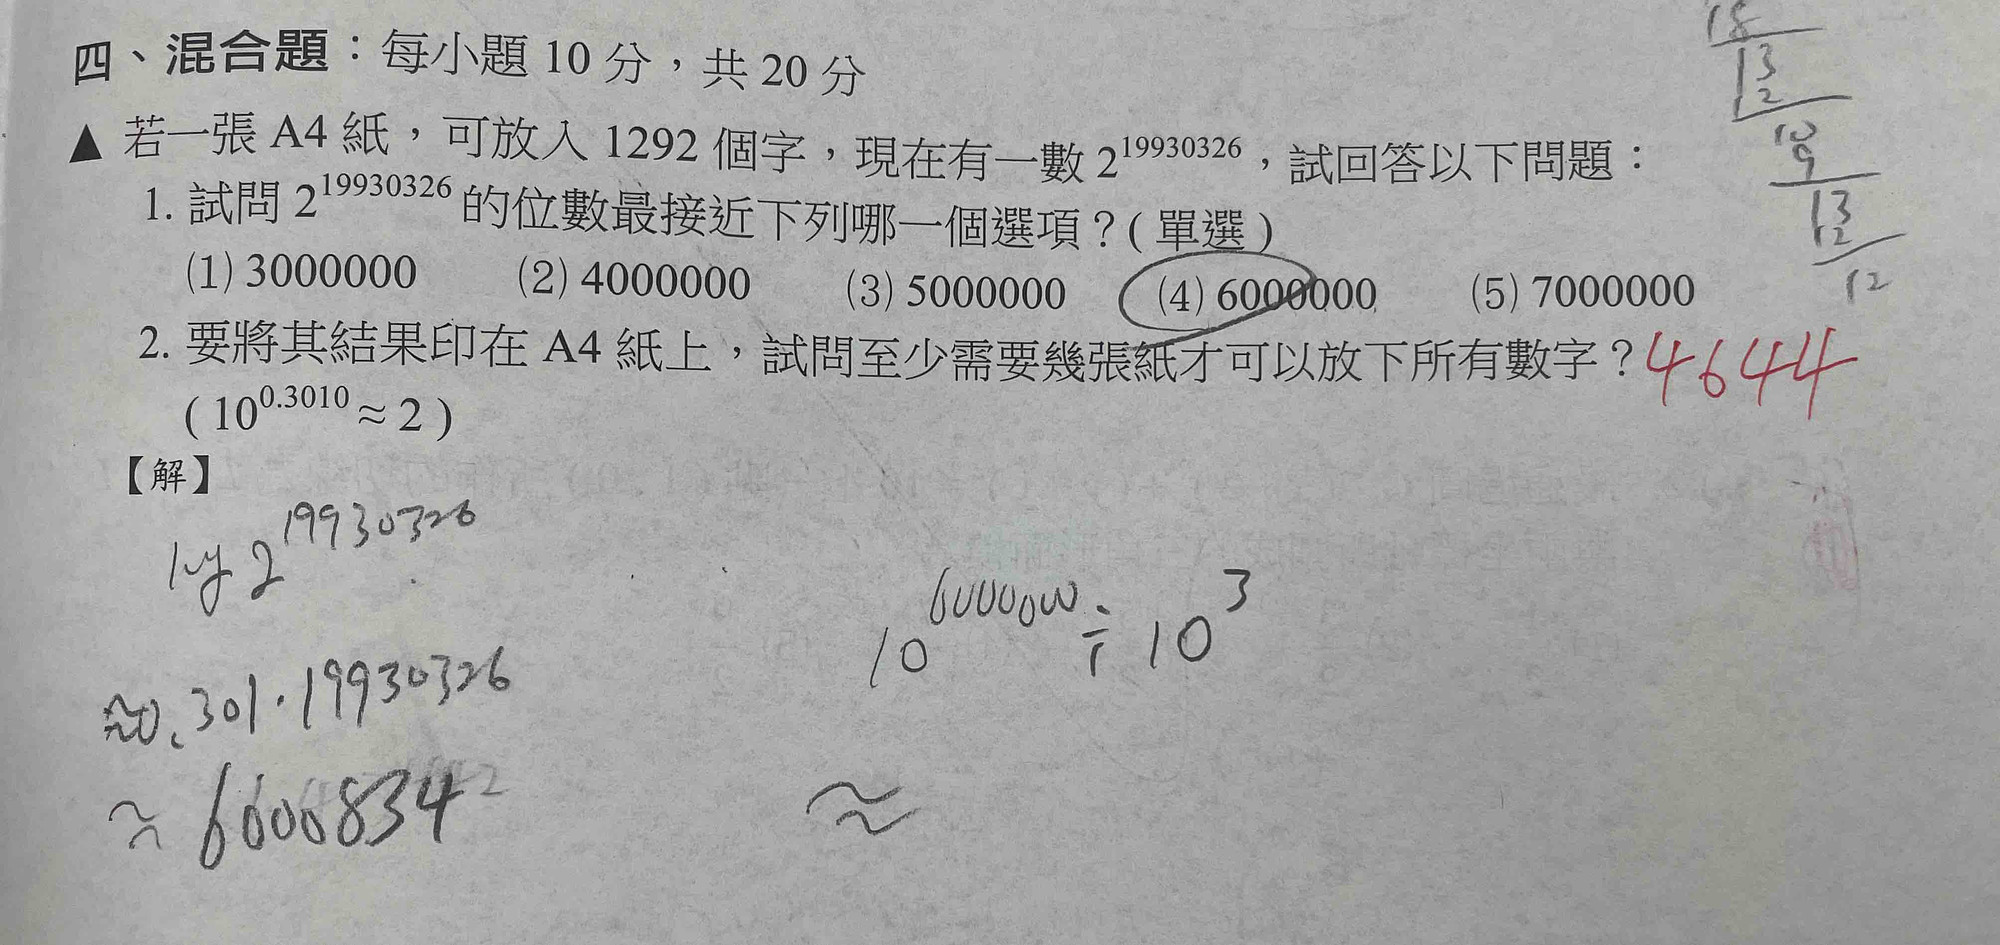 四、混合題：每小題 10 分，共 20 分
▲ 若一張 A4 紙，可放入 1292 個字，現在有一數 2^19930326，試回答以下問題：
1. 試問 2^19930326 的位數最接近下列哪一個選項？( 單選 )
(1) 3000000 (2) 4000000 (3) 5000000 (4) 6000000 (5) 7000000
2. 要將其結果印在 A4 紙上，試問至少需要幾張紙才可以放下所有數字？4644
( 10^0.3010 ≈ 2 )
【解】
log 2^19930326
≈0.301·19930326
10^6000000 ÷ 10^3
≈
13
2
9
13
2
12